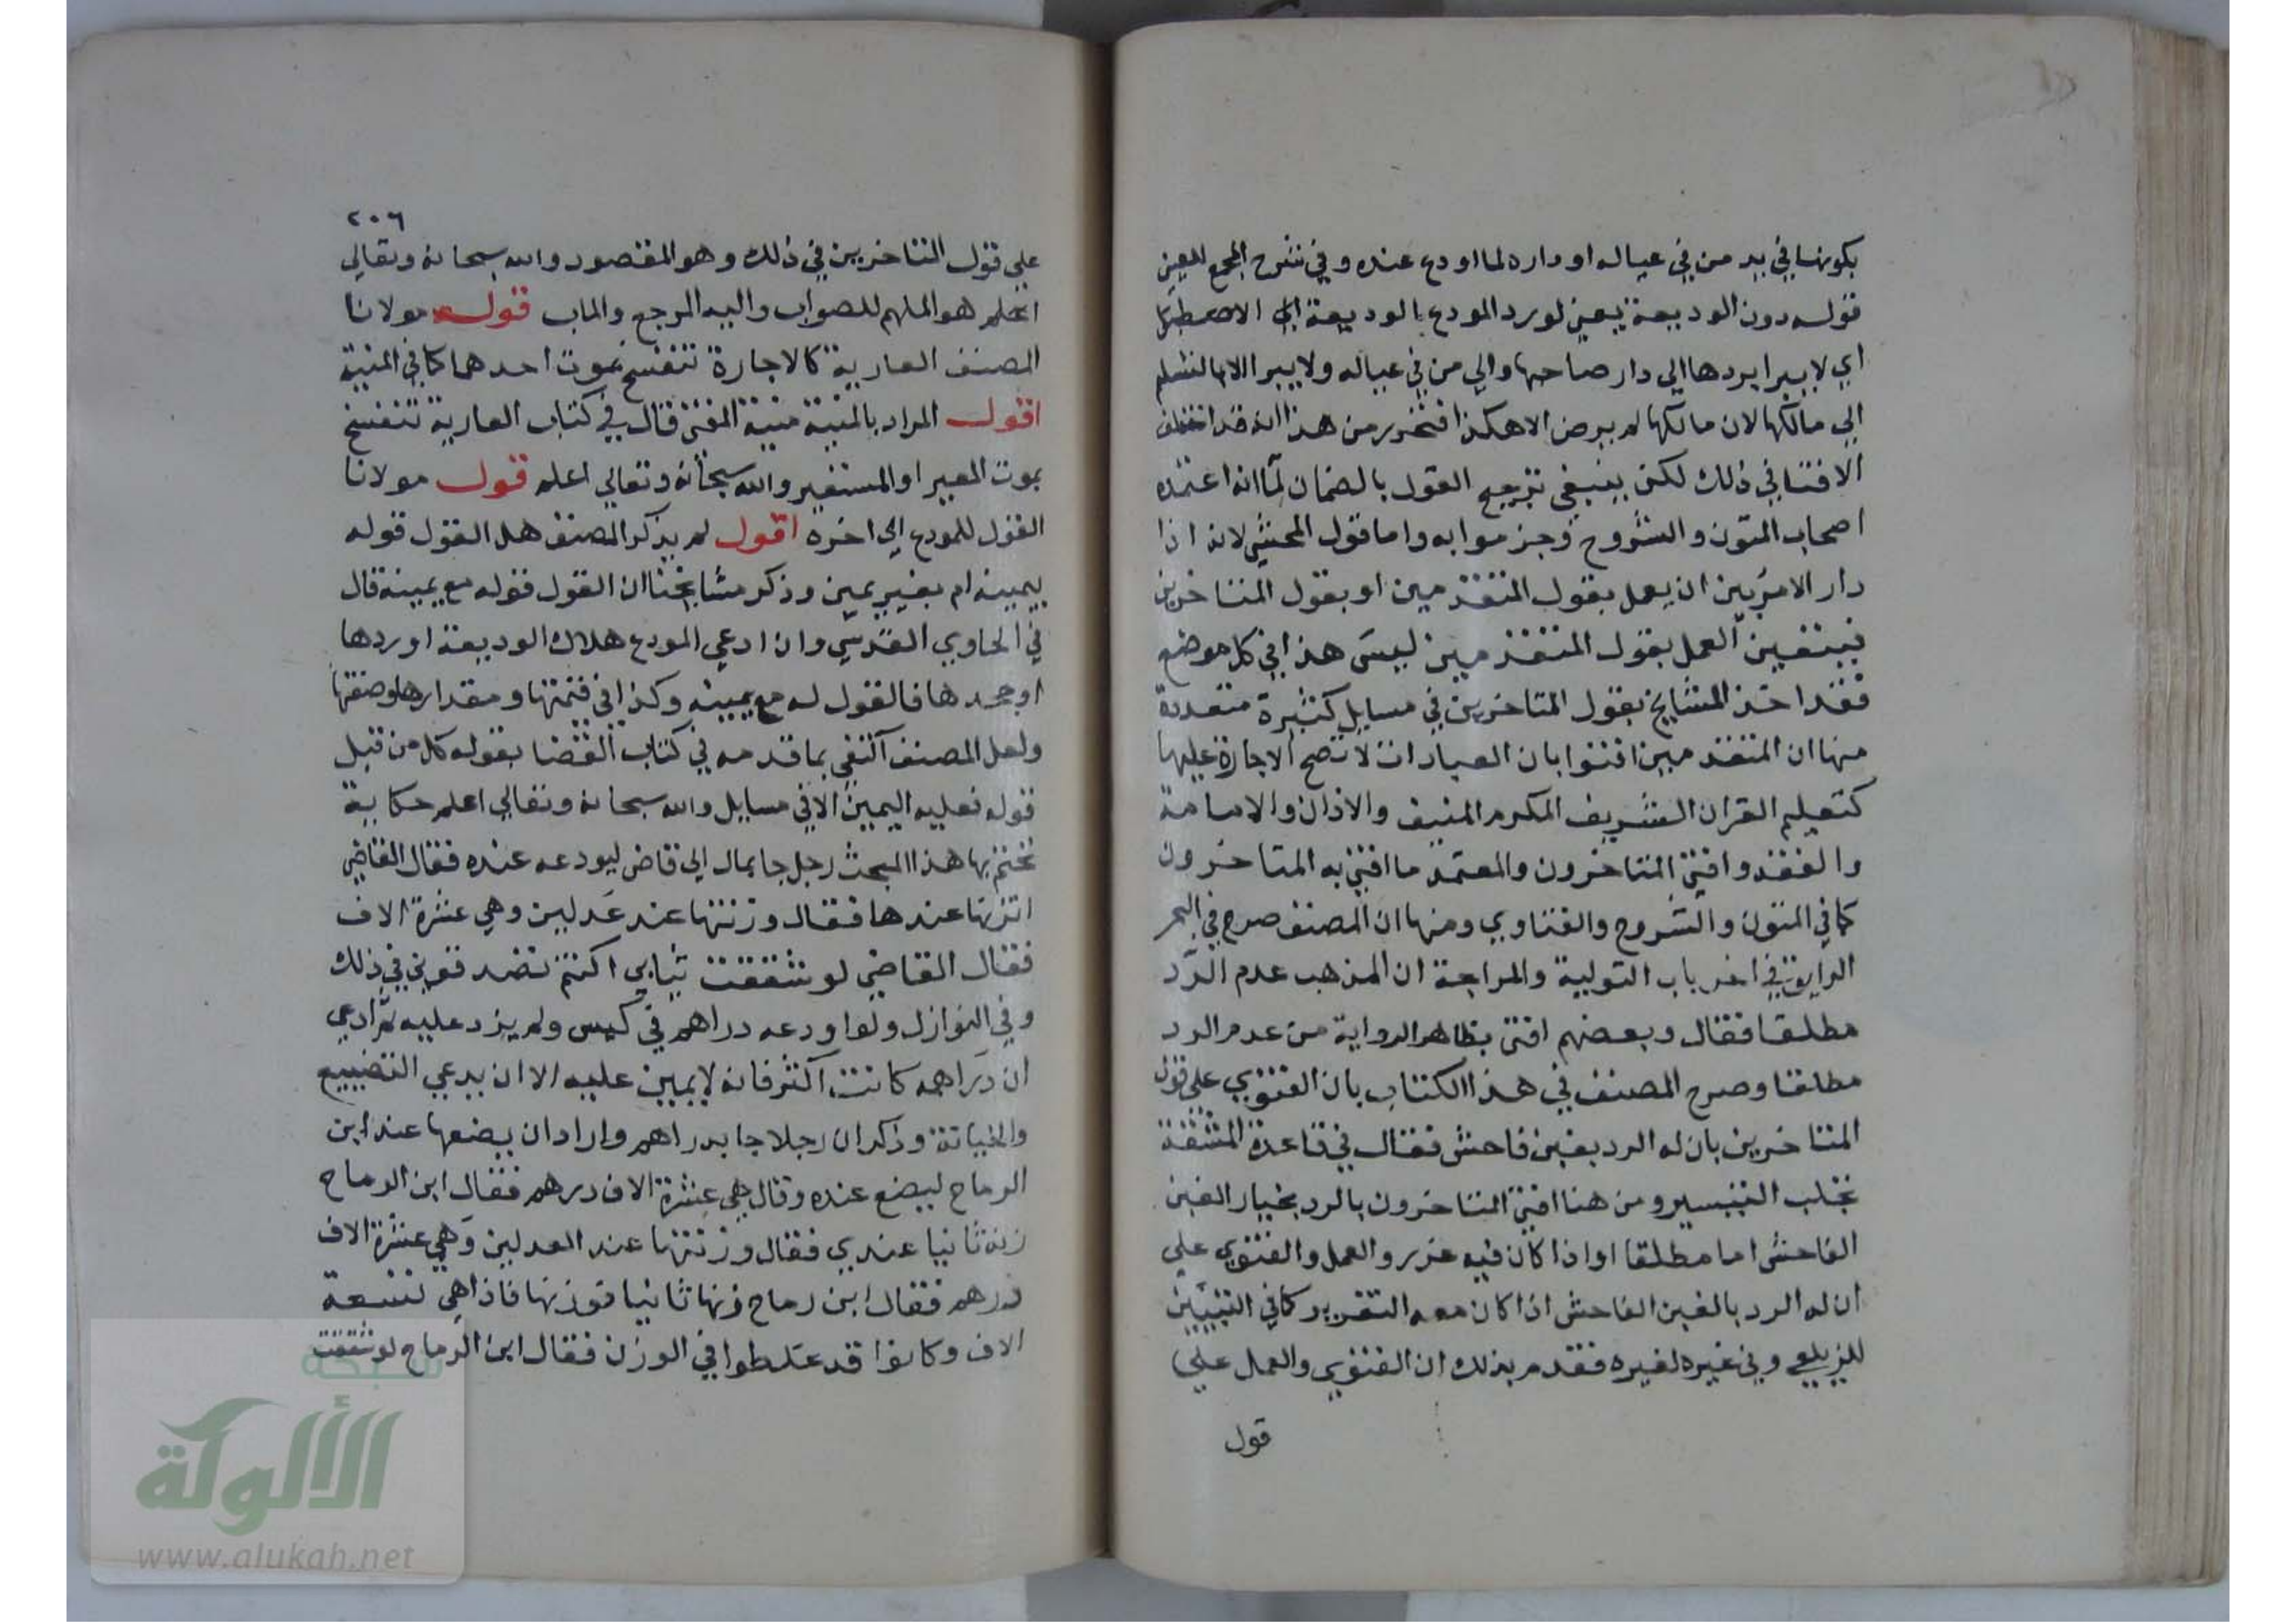 بكونها في يد من في عياله او داره لما اودع عنده وفي شرح المجمع للعيني
قوله دون الوديعة يعني لو رد المودع بالوديعة الي الاصطبل
اي لا يبرا بردها الي دار صاحبها والي من في عياله ولا يبرا الا بالتسليم
الي مالكها لان مالكها لم يرض الا هكذا فتحرر من هذا انه قد اختلف
الافتا في ذلك لكن ينبغي ترجيح القول بالضمان لما انه اعتمده
اصحاب المتون والشروح وجزموا به واما قول المحشي لانه اذا
دار الامر بين ان يعمل بقول المتقدمين او بقول المتاخرين
فيتعين العمل بقول المتقدمين ليس هذا في كل موضع
فقد اخذ المشايخ بقول المتاخرين في مسايل كثيرة متعددة
منها ان المتقدمين افتوا بان العبادات لا تصح الاجارة عليها
كتعليم القران الشريف المكرم المنيف والاذان والامامة
والفقه وافتي المتاخرون والمعتمد ما افتي به المتاخرون
كما في المتون والشروح والفتاوي ومنها ان المصنف صرح في البحر
الرايق في اخر باب التولية والمرابحة ان المذهب عدم الرد
مطلقا فقال وبعضهم افتي بظاهر الرواية من عدم الرد
مطلقا وصرح المصنف في هذا الكتاب بان الفتوي علي قول
المتاخرين بان له الرد بغبن فاحش فقال في قاعدة المشقة
تجلب التيسير ومن هنا افتي المتاخرون بالرد بخيار الغبن
الفاحش اما مطلقا او اذا كان فيه غرر والعمل والفتوي علي
ان له الرد بالغبن الفاحش اذا كان معه التغرير كما في التبيين
للزيلعي وفي غيره لغيره فقد مر بذلك ان الفتوي والعمل علي
قول
٢٠٦
علي قول المتاخرين في ذلك وهو المقصود والله سبحانه وتعالي
اعلم هو الملهم للصواب واليه المرجع والماب قوله مولانا
المصنف العارية كالاجارة تنفسخ بموت احدهما كما في المنية
اقول المراد بالمنية منية المفتي قال في كتاب العارية تنفسخ
بموت المعير او المستعير والله سبحانه وتعالي اعلم قول مولانا
القول للمودع الي اخره اقول لم يذكر المصنف هل القول قوله
بيمينه ام بغير يمين وذكر مشايخنا ان القول قوله مع يمينه قال
في الحاوي القدسي وان ادعي المودع هلاك الوديعة او ردها
او جحدها فالقول له مع يمينه وكذا في قيمتها ومقدارها وصفتها
ولعل المصنف اكتفي بما قدمه في كتاب القضا بقوله كل من قبل
قوله فعليه اليمين الا في مسايل والله سبحانه وتعالي اعلم حكاية
نختم بها هذا المبحث رجل جا بمال الي قاض ليودعه عنده فقال القاضي
اتزنها عندها فقال وزنتها عند عدلين وهي عشرة الاف
فقال القاضي لو شققت ثيابي اكنتم تصدقوني في ذلك
وفي النوازل ولو اودعه دراهم في كيس ولم يزد عليه ثم ادعي
ان دراهمه كانت اكثر فانه لا يمين عليه الا ان يدعي التضييع
والخيانة وذكر ان رجلا جا بدراهم واراد ان يضعها عند ابن
الرماح ليضع عنده وقال هي عشرة الاف درهم فقال ابن الرماح
زنه ثانيا عندي فقال وزنتها عند العدلين وهي عشرة الاف
درهم فقال ابن رماح زنها ثانيا فوزنها فاذا هي تسعة
الاف وكانوا قد غلطوا في الوزن فقال ابن الرماح لو شققت
شبكة
الألوكة
www.alukah.net